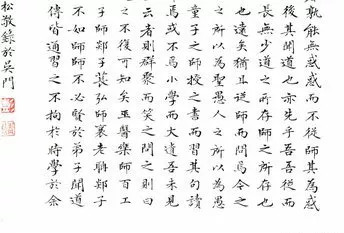 孰能無惑惑而不從師其為惑
後其聞道也亦先乎吾吾從而
長無少道之所存師之所存也
也遠矣猶且從師而問焉今之
之所以為聖愚人之所以為愚
童子之師授之書而習其句讀
焉或不焉小學而大遺吾未見
云者則群聚而笑之問之則曰
之不復可知矣巫醫樂師百工
子師郯子萇弘師襄老聃郯子
不如師師不必賢於弟子聞道
傳皆通習之不拘於時學於余
松散錄於吳門